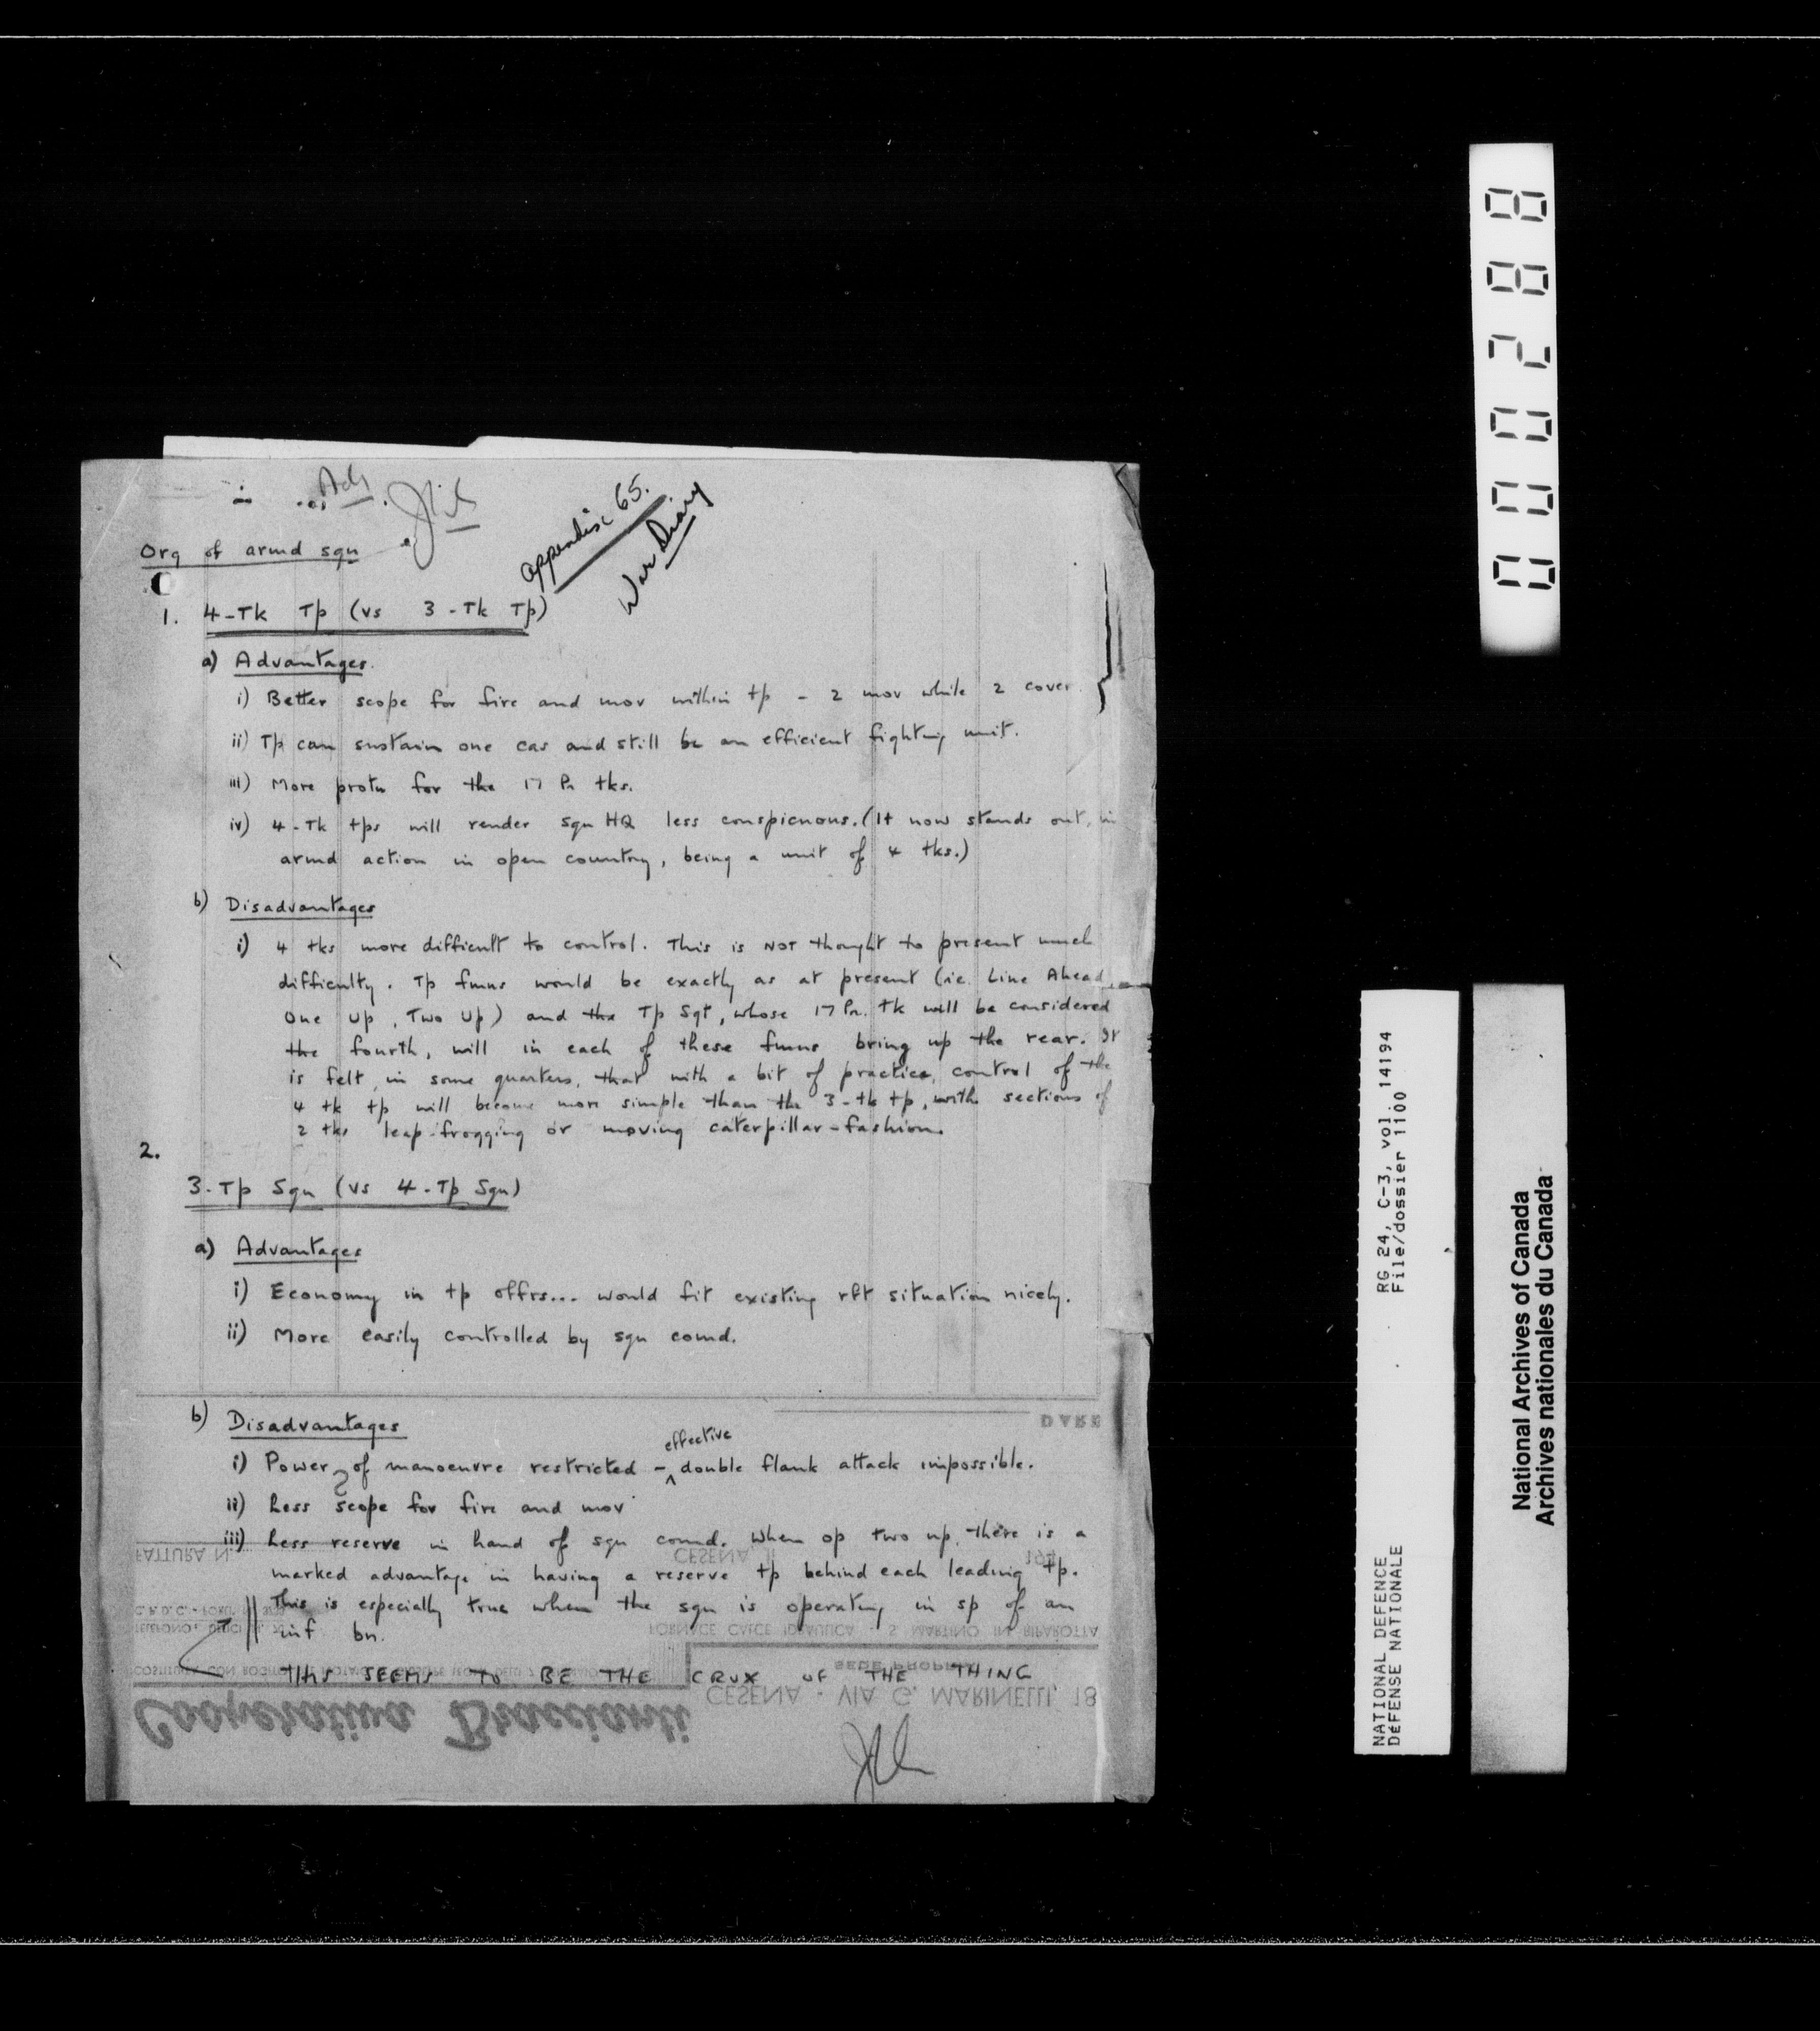 Adj
Appendix 65.
War Diary
Org of armd sqn
1. 4-Tk Tp (vs 3-Tk Tp)
a) Advantages.
i) Better scope for fire and mov within tp - 2 mov while 2 cover.
ii) Tp can sustain one cas and still be an efficient fighting unit.
iii) More protn for the 17 Pr tks.
iv) 4-Tk tps will render sqn HQ less conspicuous. (It now stands out, in
armd action in open country, being a unit of 4 tks.)
b) Disadvantages
i) 4 tks more difficult to control. This is NOT thought to present much
difficulty. Tp fmns would be exactly as at present (ie. Line Ahead,
One Up, Two Up) and the Tp Sgt, whose 17 Pr. tk will be considered
the fourth, will in each of these fmns bring up the rear. It
is felt, in some quarters, that with a bit of practice, control of the
4 tk tp will become more simple than the 3-tk tp, with sections of
2 tks leap-frogging or moving caterpillar-fashion.
2.
3-Tp Sqn (vs 4-Tp Sqn)
a) Advantages
i) Economy in tp offrs... would fit existing rft situation nicely.
ii) More easily controlled by sqn comd.
DARE
b) Disadvantages
i) Power of manoeuvre restricted - effective double flank attack impossible.
ii) Less scope for fire and mov
iii) Less reserve in hand of sqn comd. When op two up, there is a
FATTURA N. CESENA, li 194
marked advantage in having a reserve tp behind each leading tp.
This is especially true when the sqn is operating in sp of an
inf bn.
FORNACE CALCE IDRAULICA - S. MARTINO IN RIPAROTTA
THIS SEEMS TO BE THE CRUX OF THE THING
SEDE PROPRIA
CESENA - VIA G. MARINELLI, 18
Cooperativa Braccianti
000288
RG 24, C-3, vol. 14194
File/dossier 1100
NATIONAL DEFENCE
DÉFENSE NATIONALE
National Archives of Canada
Archives nationales du Canada